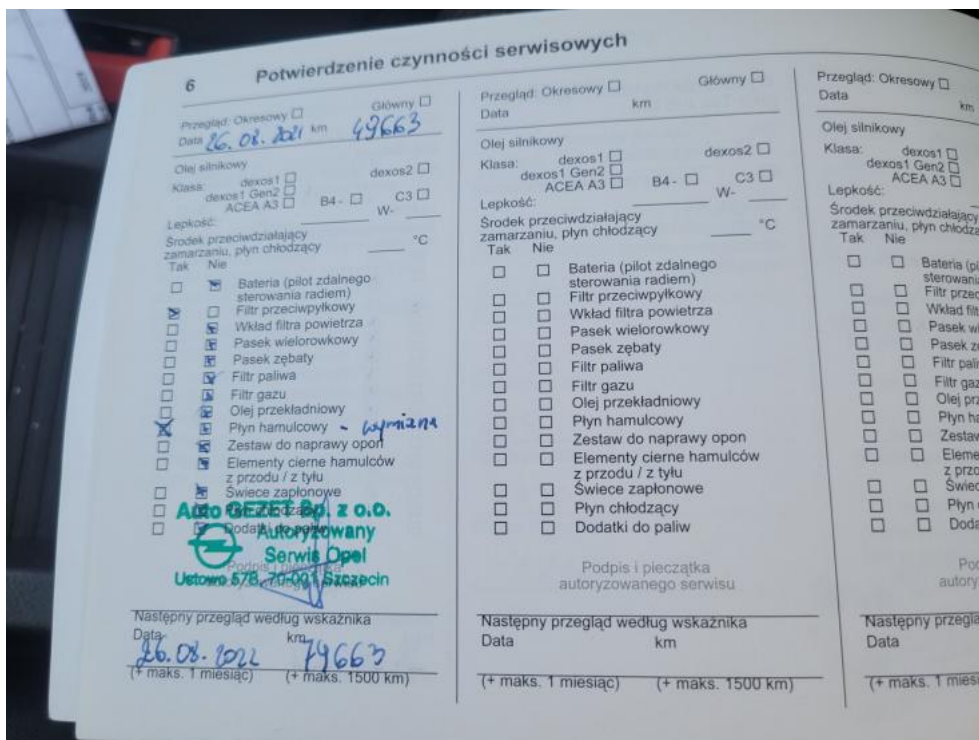 6 Potwierdzenie czynności serwisowych
Przegląd: Okresowy Główny
Data 26.08.2021 km 49663
Olej silnikowy
Klasa: dexos1 dexos2
dexos1 Gen2
ACEA A3 B4 - C3
Lepkość: W-
Środek przeciwdziałający
zamarzaniu, płyn chłodzący °C
Tak Nie
Bateria (pilot zdalnego
sterowania radiem)
Filtr przeciwpyłkowy
Wkład filtra powietrza
Pasek wielorowkowy
Pasek zębaty
Filtr paliwa
Filtr gazu
Olej przekładniowy
Płyn hamulcowy - wymiana
Zestaw do naprawy opon
Elementy cierne hamulców
z przodu / z tyłu
Świece zapłonowe
Dodatki do paliw
Auto GEZET Sp. z o.o.
Autoryzowany
Serwis Opel
Ustowo 57B, 70-001 Szczecin
Podpis i pieczątka
Następny przegląd według wskaźnika
Data km
26.08.2022 79663
(+ maks. 1 miesiąc) (+ maks. 1500 km)
Przegląd: Okresowy Główny
Data km
Olej silnikowy
Klasa: dexos1 dexos2
dexos1 Gen2
ACEA A3 B4 - C3
Lepkość: W-
Środek przeciwdziałający
zamarzaniu, płyn chłodzący °C
Tak Nie
Bateria (pilot zdalnego
sterowania radiem)
Filtr przeciwpyłkowy
Wkład filtra powietrza
Pasek wielorowkowy
Pasek zębaty
Filtr paliwa
Filtr gazu
Olej przekładniowy
Płyn hamulcowy
Zestaw do naprawy opon
Elementy cierne hamulców
z przodu / z tyłu
Świece zapłonowe
Płyn chłodzący
Dodatki do paliw
Podpis i pieczątka
autoryzowanego serwisu
Następny przegląd według wskaźnika
Data km
(+ maks. 1 miesiąc) (+ maks. 1500 km)
Przegląd: Okresowy
Data km
Olej silnikowy
Klasa: dexos1
dexos1 Gen2
ACEA A3
Lepkość:
Środek przeciwdziałający
zamarzaniu, płyn chłodzą
Tak Nie
Bateria (pi
sterowania
Filtr przec
Wkład filt
Pasek wi
Pasek zę
Filtr pali
Filtr gaz
Olej prz
Płyn ha
Zestaw
Eleme
z prz
Świec
Płyn
Doda
Pod
autory
Następny przeglą
Data
(+ maks. 1 miesi